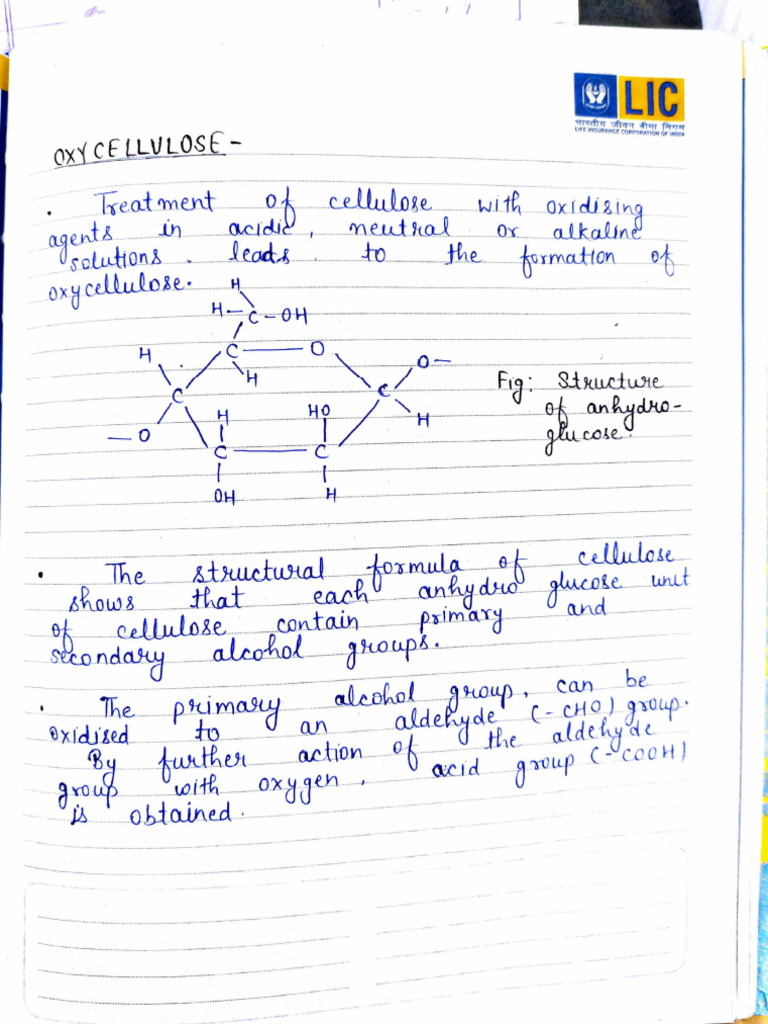 LIC
भारतीय जीवन बीमा निगम
LIFE INSURANCE CORPORATION OF INDIA
OXYCELLULOSE -
. Treatment of cellulose with oxidising
agents in acidic, neutral or alkaline
solutions. leads. to the formation of
oxycellulose.
H
H-C-OH
H C O O-
H
C C
H HO H
-O
C C
OH H
Fig: Structure
of anhydro-
glucose.
. The structural formula of cellulose
shows that each anhydro glucose unit
of cellulose contain primary and
secondary alcohol groups.
. The primary alcohol group, can be
oxidised to an aldehyde (-CHO) group.
By further action of the aldehyde
group with oxygen, acid group (-COOH)
is obtained.